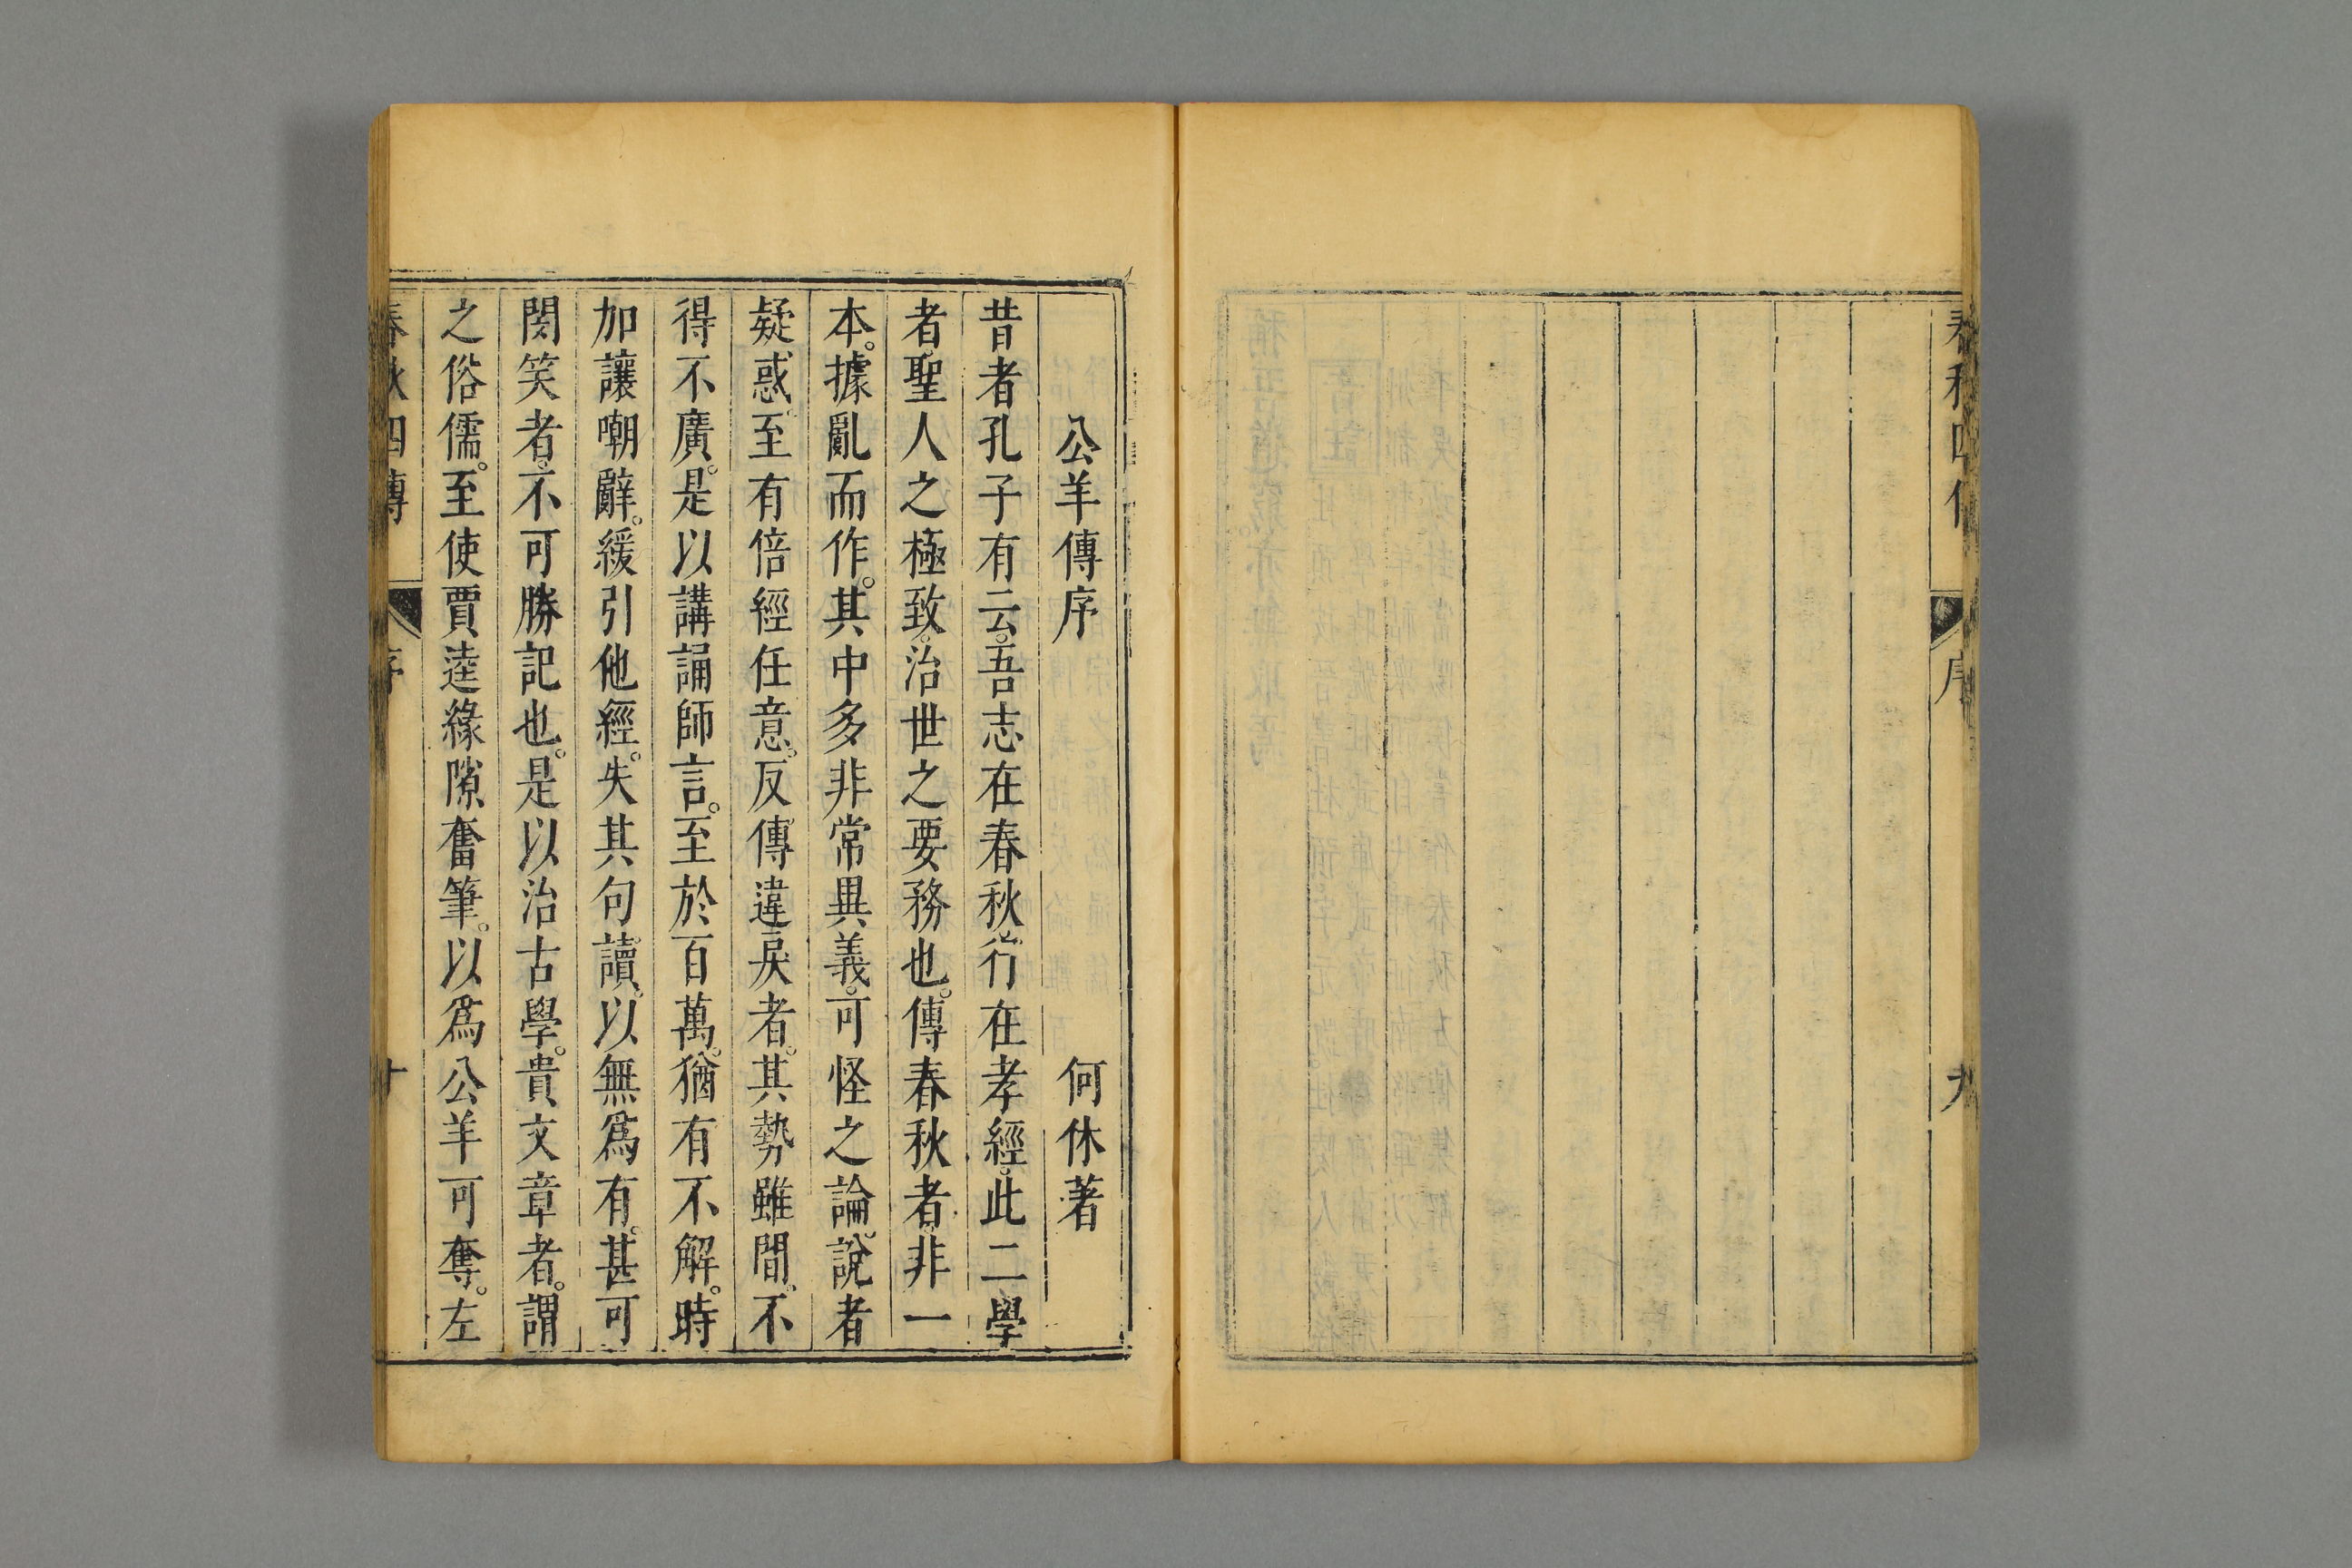 春秋四傳
序
九
公羊傳序 何休著
昔者孔子有云。吾志在春秋。行在孝經。此二學
者聖人之極致。治世之要務也。傳春秋者。非一
本。據亂而作。其中多非常異義。可怪之論。說者
疑惑。至有倍經任意。反傳違戾者。其勢雖間。不
得不廣。是以講誦師言。至於百萬。猶有不解。時
加讓嘲辭。緩引他經。失其句讀。以無爲有。甚可
閔笑者。不可勝記也。是以治古學。貴文章者。謂
之俗儒。至使賈逵緣隙奮筆。以爲公羊可奪。左
春秋四傳
序
十